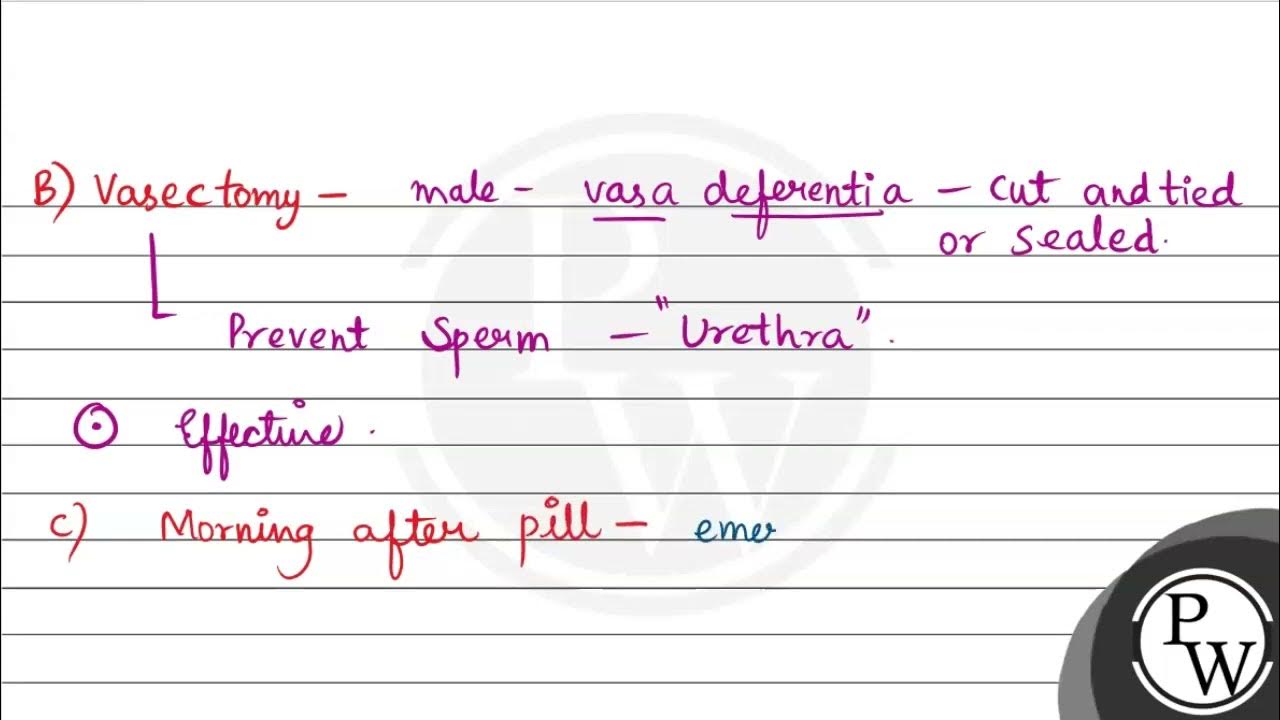 B) Vasectomy - male - vasa deferentia - cut and tied
or sealed.
Prevent Sperm - "Urethra".
Effective.
C) Morning after pill - emer
PW
PW